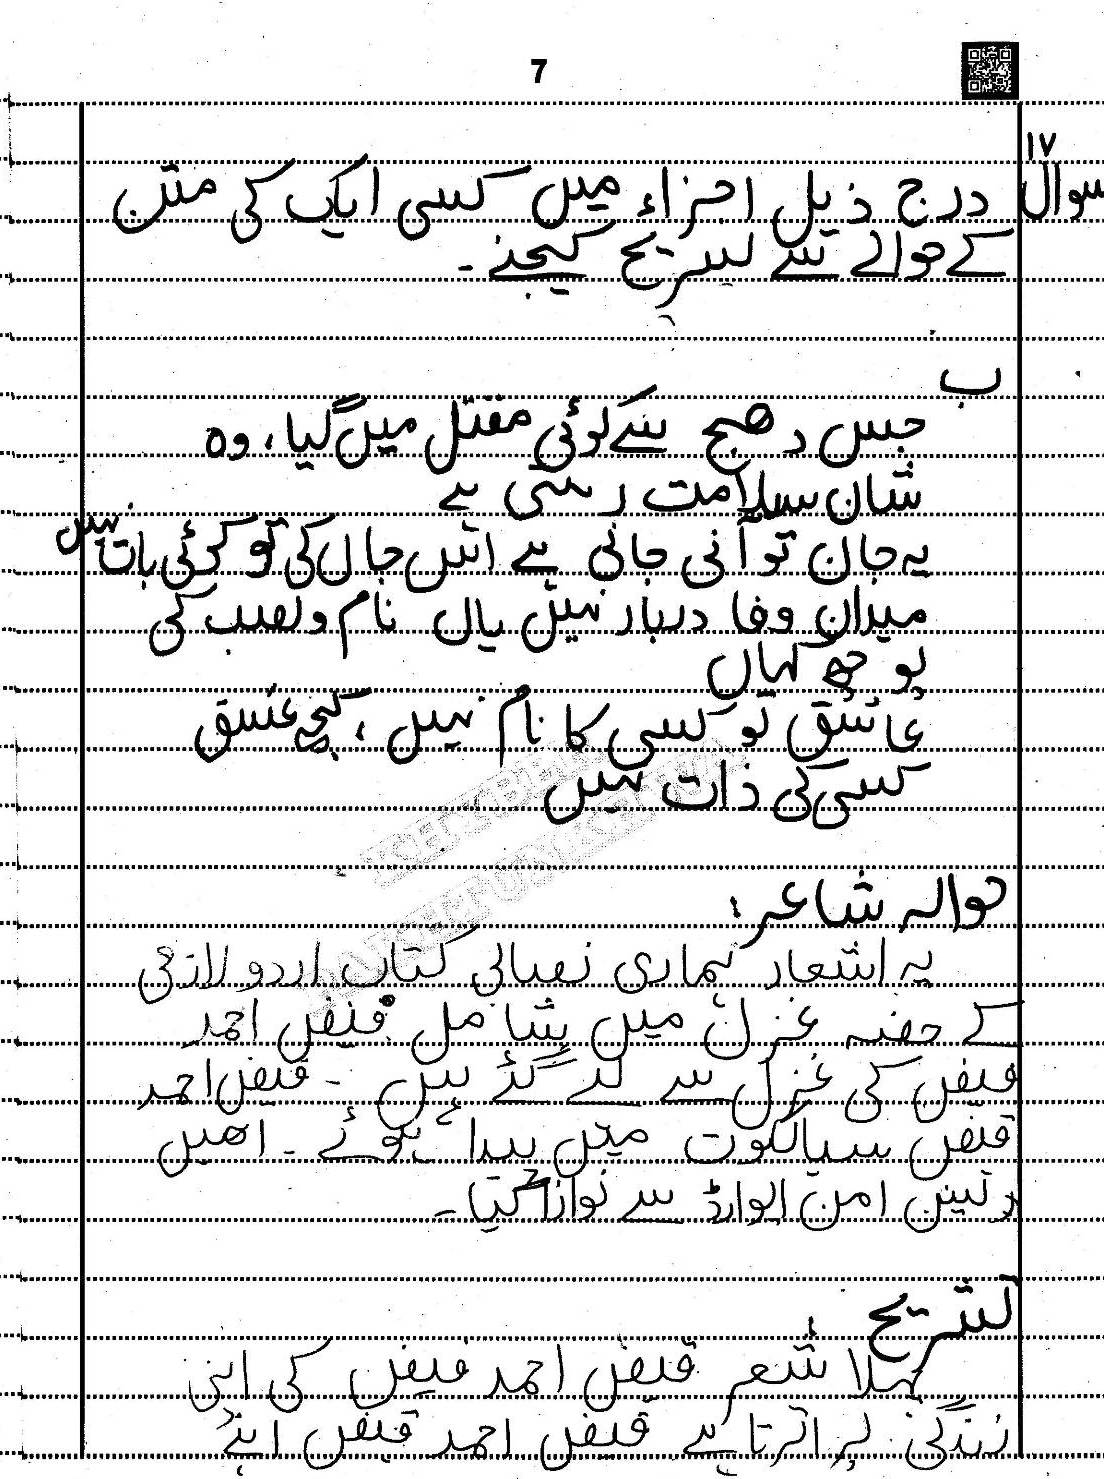 7
سوال ۱۷ درج ذیل اجزاء میں کسی ایک کی متن
کے حوالے سے تشریح کیجئے۔
ب
جس دھج سے کوئی مقتل میں گیا، وہ
شان سلامت رہتی ہے
یہ جان تو آنی جانی ہے اس جاں کی تو کوئی بات نہیں
میدان وفا دربار نہیں یاں نام و نصب کی
پوچھ کہاں
عاشق تو کسی کا نام نہیں، کچھ عشق
کسی کی ذات نہیں
KHYBER
PAKHTUNKHWA
حوالہ شاعر:
یہ اشعار ہماری نصابی کتاب اردو لازمی
کے حصہ غزل میں شامل فیض احمد
فیض کی غزل سے لئے گئے ہیں ۔ فیض احمد
فیض سیالکوٹ میں پیدا ہوئے ۔ انھیں
لینن امن ایوارڈ سے نوازا گیا۔
تشریح
پہلا شعر فیض احمد فیض کی اپنی
زندگی پر اترتا ہے فیض احمد فیض اپنے